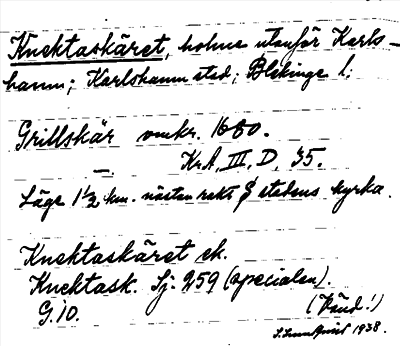 Knektaskäret, holme utanför Karls-
hamn; Karlshamn stad; Blekinge l;
Grillskär omkr. 1660.
— KrA, III, D, 35.
Läge 1½ km. nästan rakt S stadens kyrka.
Knektaskäret ek.
Knektask. Sj. 259 (specialen).
G.10. (Vänd!)
1938.